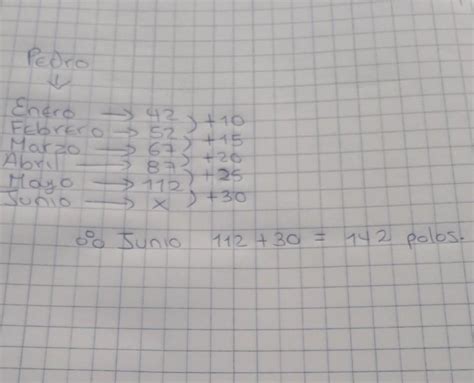 Pedro
↓
Enero → 42
+10
Febrero → 52
+15
Marzo → 67
+20
Abril → 87
+25
Mayo → 112
+30
Junio → x
∴ Junio 112 + 30 = 142 polos.